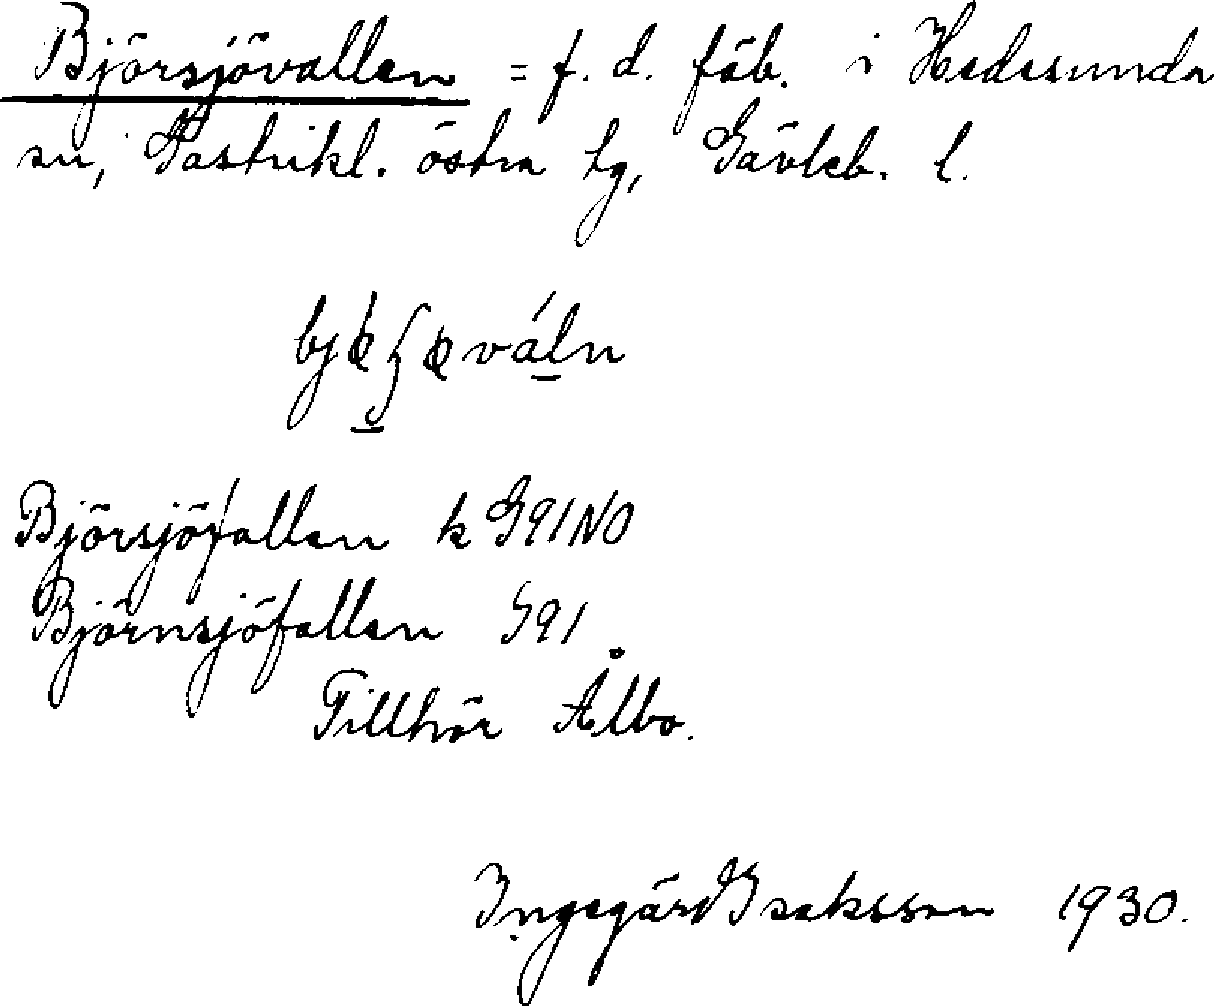 Björsjövallen = f. d. fäb. i Hedesunda
sn, Gästrikl. östra tg, Gävleb. l.
Björsjöfallen k G91NO
Björnsjöfallen S91
Tillhör Ålbo.
Ingegärd Isaksson 1930.